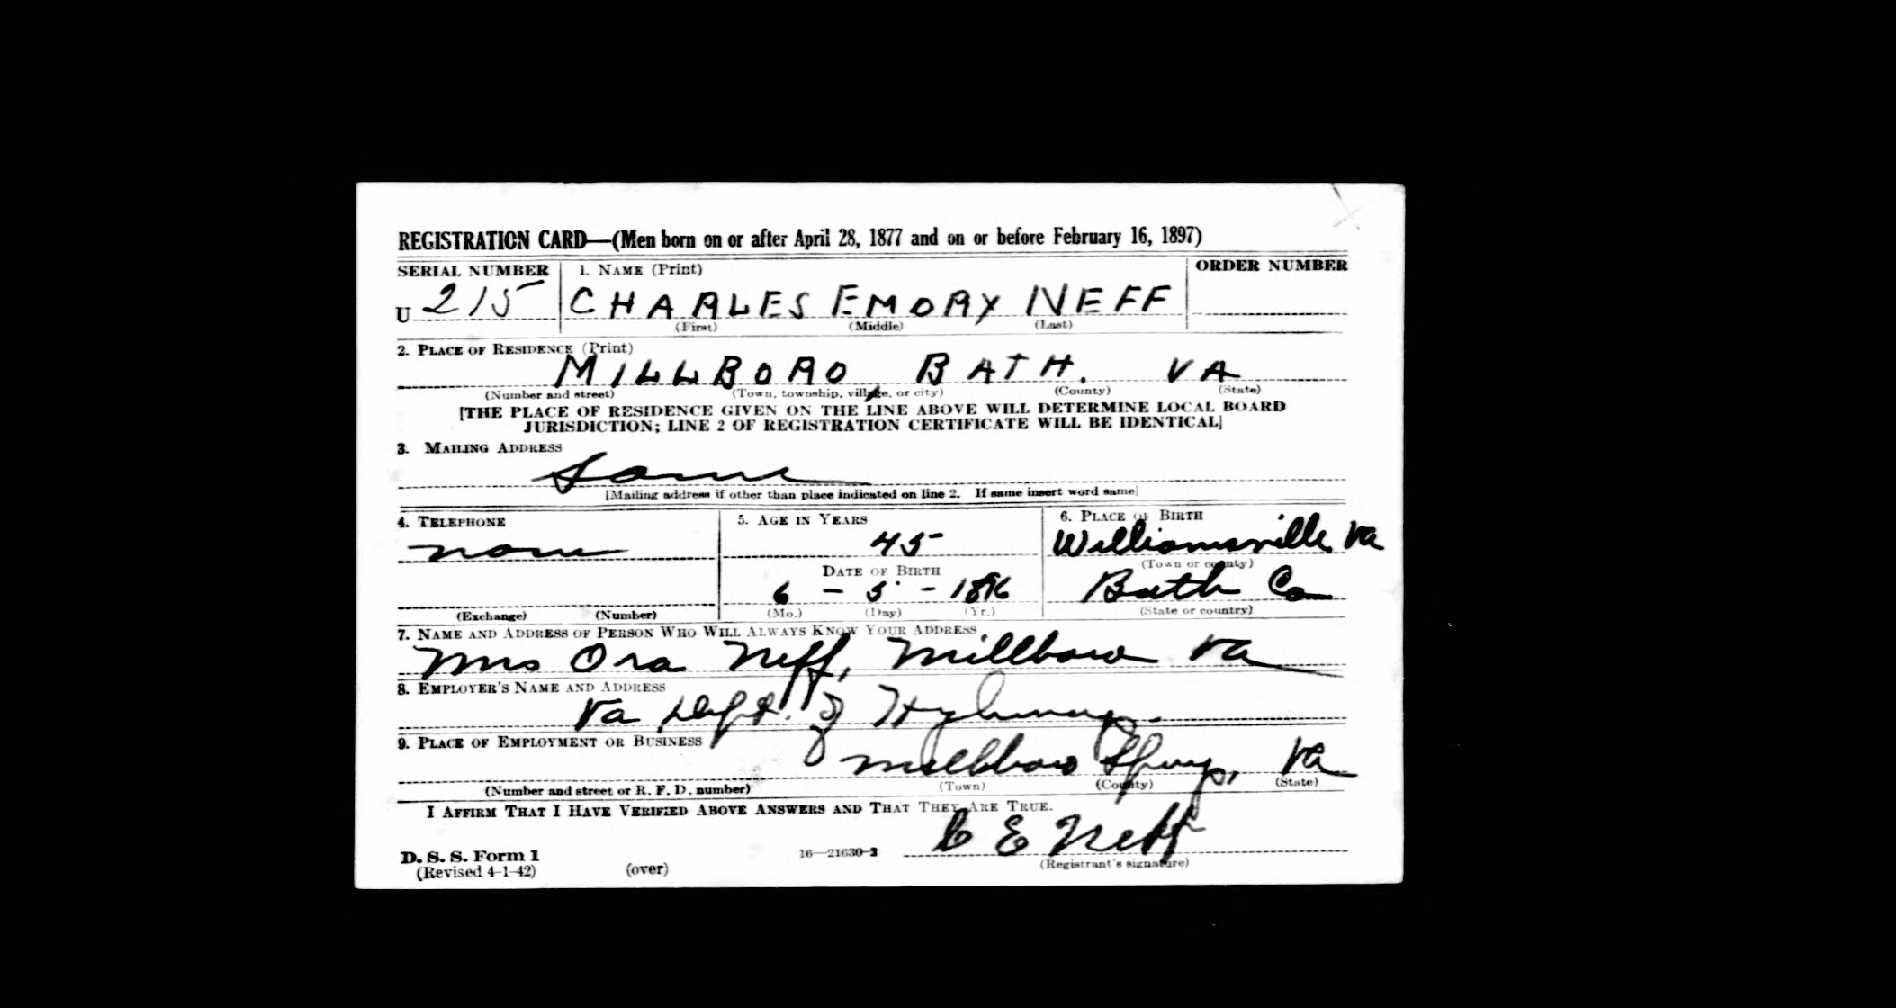 REGISTRATION CARD—(Men born on or after April 28, 1877 and on or before February 16, 1897)
SERIAL NUMBER 1. NAME (Print) ORDER NUMBER
U 215 CHARLES EMORY NEFF
(First) (Middle) (Last)
2. PLACE OF RESIDENCE (Print)
MILLBORO, BATH. VA
(Number and street) (Town, township, village, or city) (County) (State)
[THE PLACE OF RESIDENCE GIVEN ON THE LINE ABOVE WILL DETERMINE LOCAL BOARD
JURISDICTION; LINE 2 OF REGISTRATION CERTIFICATE WILL BE IDENTICAL]
3. MAILING ADDRESS
Same
[Mailing address if other than place indicated on line 2. If same insert word same]
4. TELEPHONE 5. AGE IN YEARS 6. PLACE OF BIRTH
none 45 Williamsville, Va
DATE OF BIRTH (Town or county)
6 - 5 - 1896 Bath Co
(Exchange) (Number) (Mo.) (Day) (Yr.) (State or country)
7. NAME AND ADDRESS OF PERSON WHO WILL ALWAYS KNOW YOUR ADDRESS
Mrs Ora Neff, Millboro Va
8. EMPLOYER'S NAME AND ADDRESS
Va Dept. of Highways.
9. PLACE OF EMPLOYMENT OR BUSINESS
Millboro Springs, Va
(Number and street or R. F. D. number) (Town) (County) (State)
I AFFIRM THAT I HAVE VERIFIED ABOVE ANSWERS AND THAT THEY ARE TRUE.
C E Neff
D. S. S. Form 1 16—21630-2
(Revised 4-1-42) (over) (Registrant's signature)